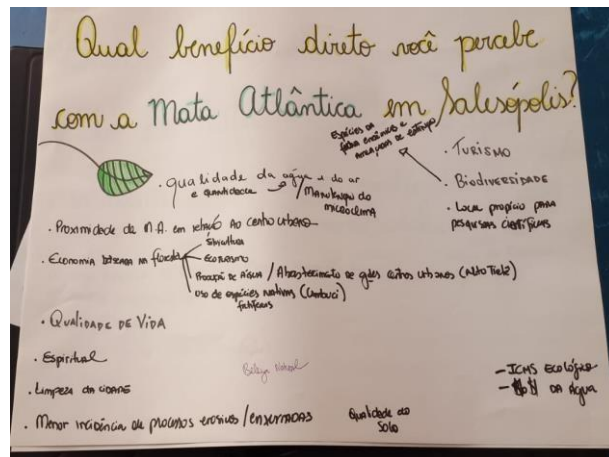 Qual benefício direto você percebe
com a Mata Atlântica em Salesópolis?
Espécies da
fauna endêmicas e
ameaçadas de extinção
. Turismo
. Biodiversidade
. Local propício para
pesquisas científicas
. qualidade da água e do ar
e quantidade
/ Manutenção do
microclima
. Proximidade de M.A. em relação ao centro urbano
. Economia baseada na floresta
Silvicultura
Ecoturismo
Produção de Água / Abastecimento de gdes centros urbanos (Alto Tietê)
Uso de espécies nativas (Cambuci)
frutíferas
. Qualidade de Vida
. Espiritual
Beleza Natural
. Limpeza da cidade
- ICMS Ecológico
- da Água
. Menor incidência de processos erosivos / enxurradas
Qualidade do
Solo